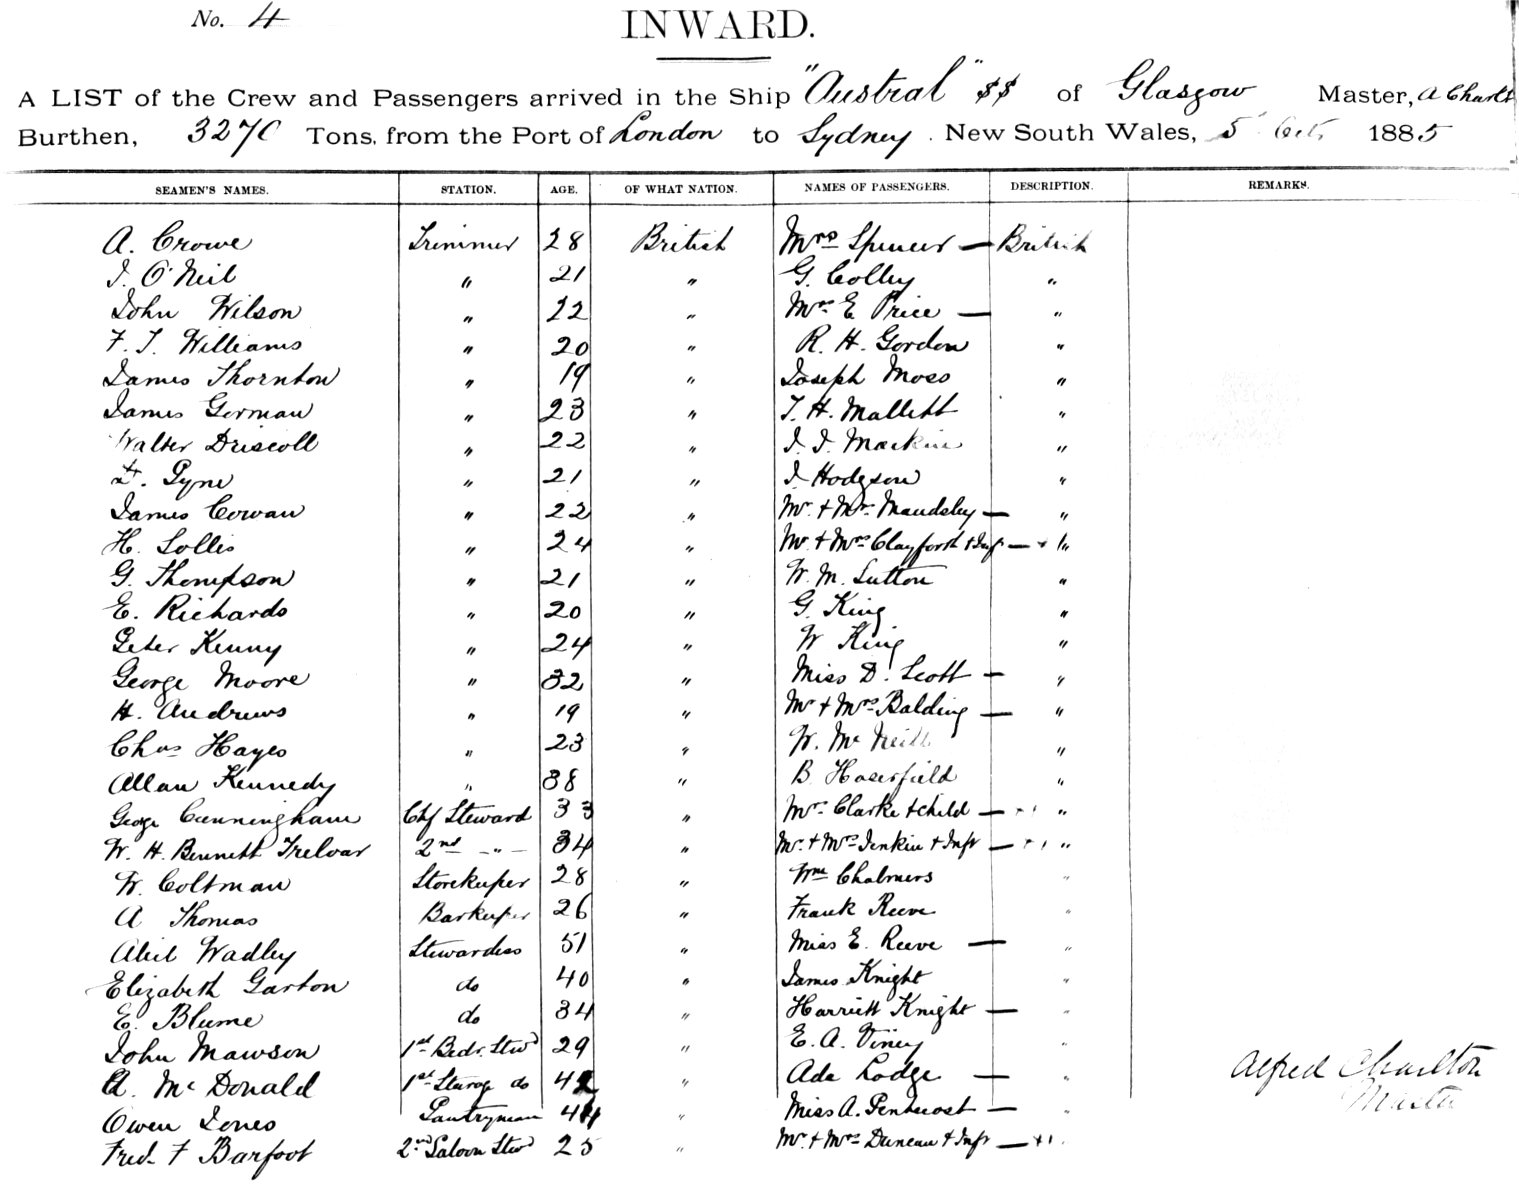 No. 4
INWARD.
A LIST of the Crew and Passengers arrived in the Ship "Austral" SS of Glasgow Master, A Charlt
Burthen, 3270 Tons, from the Port of London to Sydney. New South Wales, 5 Oct, 1885
SEAMEN'S NAMES. STATION. AGE. OF WHAT NATION. NAMES OF PASSENGERS. DESCRIPTION. REMARKS.
A. Crowe Trimmer 28 British Mrs Spencer — British
J. O'Neil " 21 " G. Colley "
John Wilson " 22 " Mrs E Price — "
F. J. Williams " 20 " R. H. Gordon "
James Thornton " 19 " Joseph Moss "
James Gorman " 23 " T. H. Mallett "
Walter Driscoll " 22 " J. J. Mackin "
F. Pyne " 21 " J Hodgson "
James Cowan " 22 " Mr. + Mrs. Maudsley — "
H. Lollis " 24 " Mr + Mrs Clayforth + Inf — + 1 "
G. Thompson " 21 " W. M. Sutton "
E. Richards " 20 " G. King "
Peter Kenny " 24 " W King "
George Moore " 32 " Miss D. Scott — "
H. Andrews " 19 " Mr + Mrs Balding — "
Chas Hayes " 23 " W. Mc Neill "
Allan Kennedy " 38 " B Haserfield "
George Cunningham Chf Steward 33 " Mrs. Clarke + child — + 1 "
W. H. Bennett Treloar 2nd — " — 34 " Mr. + Mrs Jenkin + Inft — + 1 "
W. Coltman Storekeeper 28 " Wm Chalmers "
A Thomas Barkeeper 26 " Frank Reeve "
Abil Wadley Stewardess 51 " Miss E. Reeve — "
Elizabeth Garton do 40 " James Knight "
E. Blume do 34 " Harriett Knight — "
John Mawson 1st Bedr. Stwd 29 " E. A. Viney "
A. Mc Donald 1st Sturge do 42 " Ada Lodge — "
Owen Jones Pantryman 44 " Miss A. Pentecost — "
Fred. F Barfoot 2nd Saloon Stwd 25 " Mr. + Mrs Duncan + Inft — + 1 "
Alfred Charlton
Master